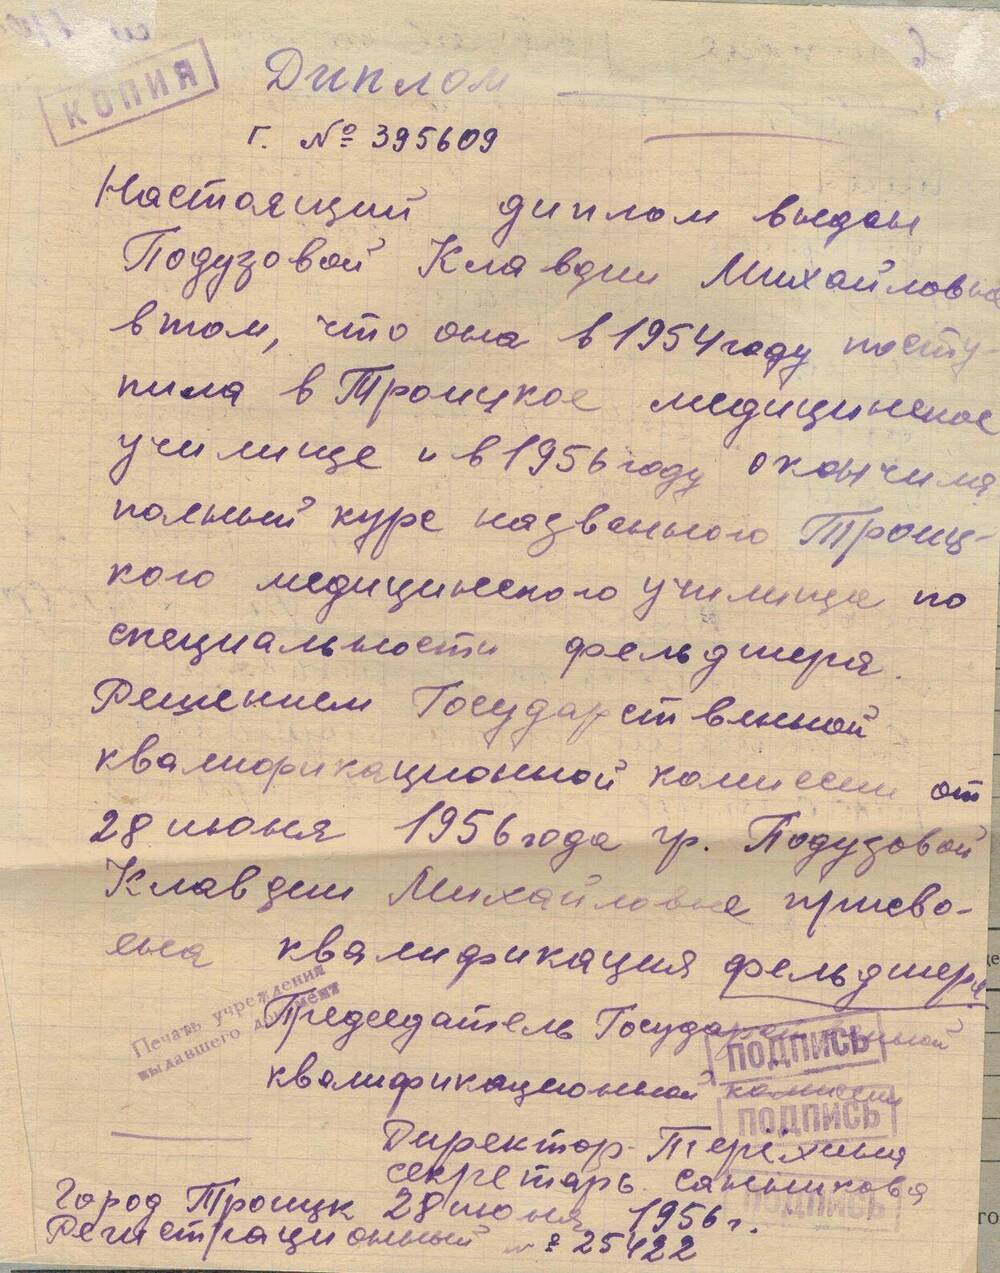 КОПИЯ
Диплом
Г. № 395609
Настоящий диплом выдан
Подузовой Клавдии Михайловне
в том, что она в 1954 году посту-
пила в Троицкое медицинское
училище и в 1956 году окончила
полный курс названного Троиц-
кого медицинского училища по
специальности фельдшера.
Решением Государственной
квалификационной комиссии от
28 июня 1956 года гр. Подузовой
Клавдии Михайловне присво-
ена квалификация фельдшера
Печать учреждения
выдавшего документ
Председатель Государственной
ПОДПИСЬ
квалификационной комиссии
ПОДПИСЬ
Директор - Терёхина
секретарь. Санникова
ПОДПИСЬ
Город Троицк 28 июня 1956 г.
Регистрационный № 25422